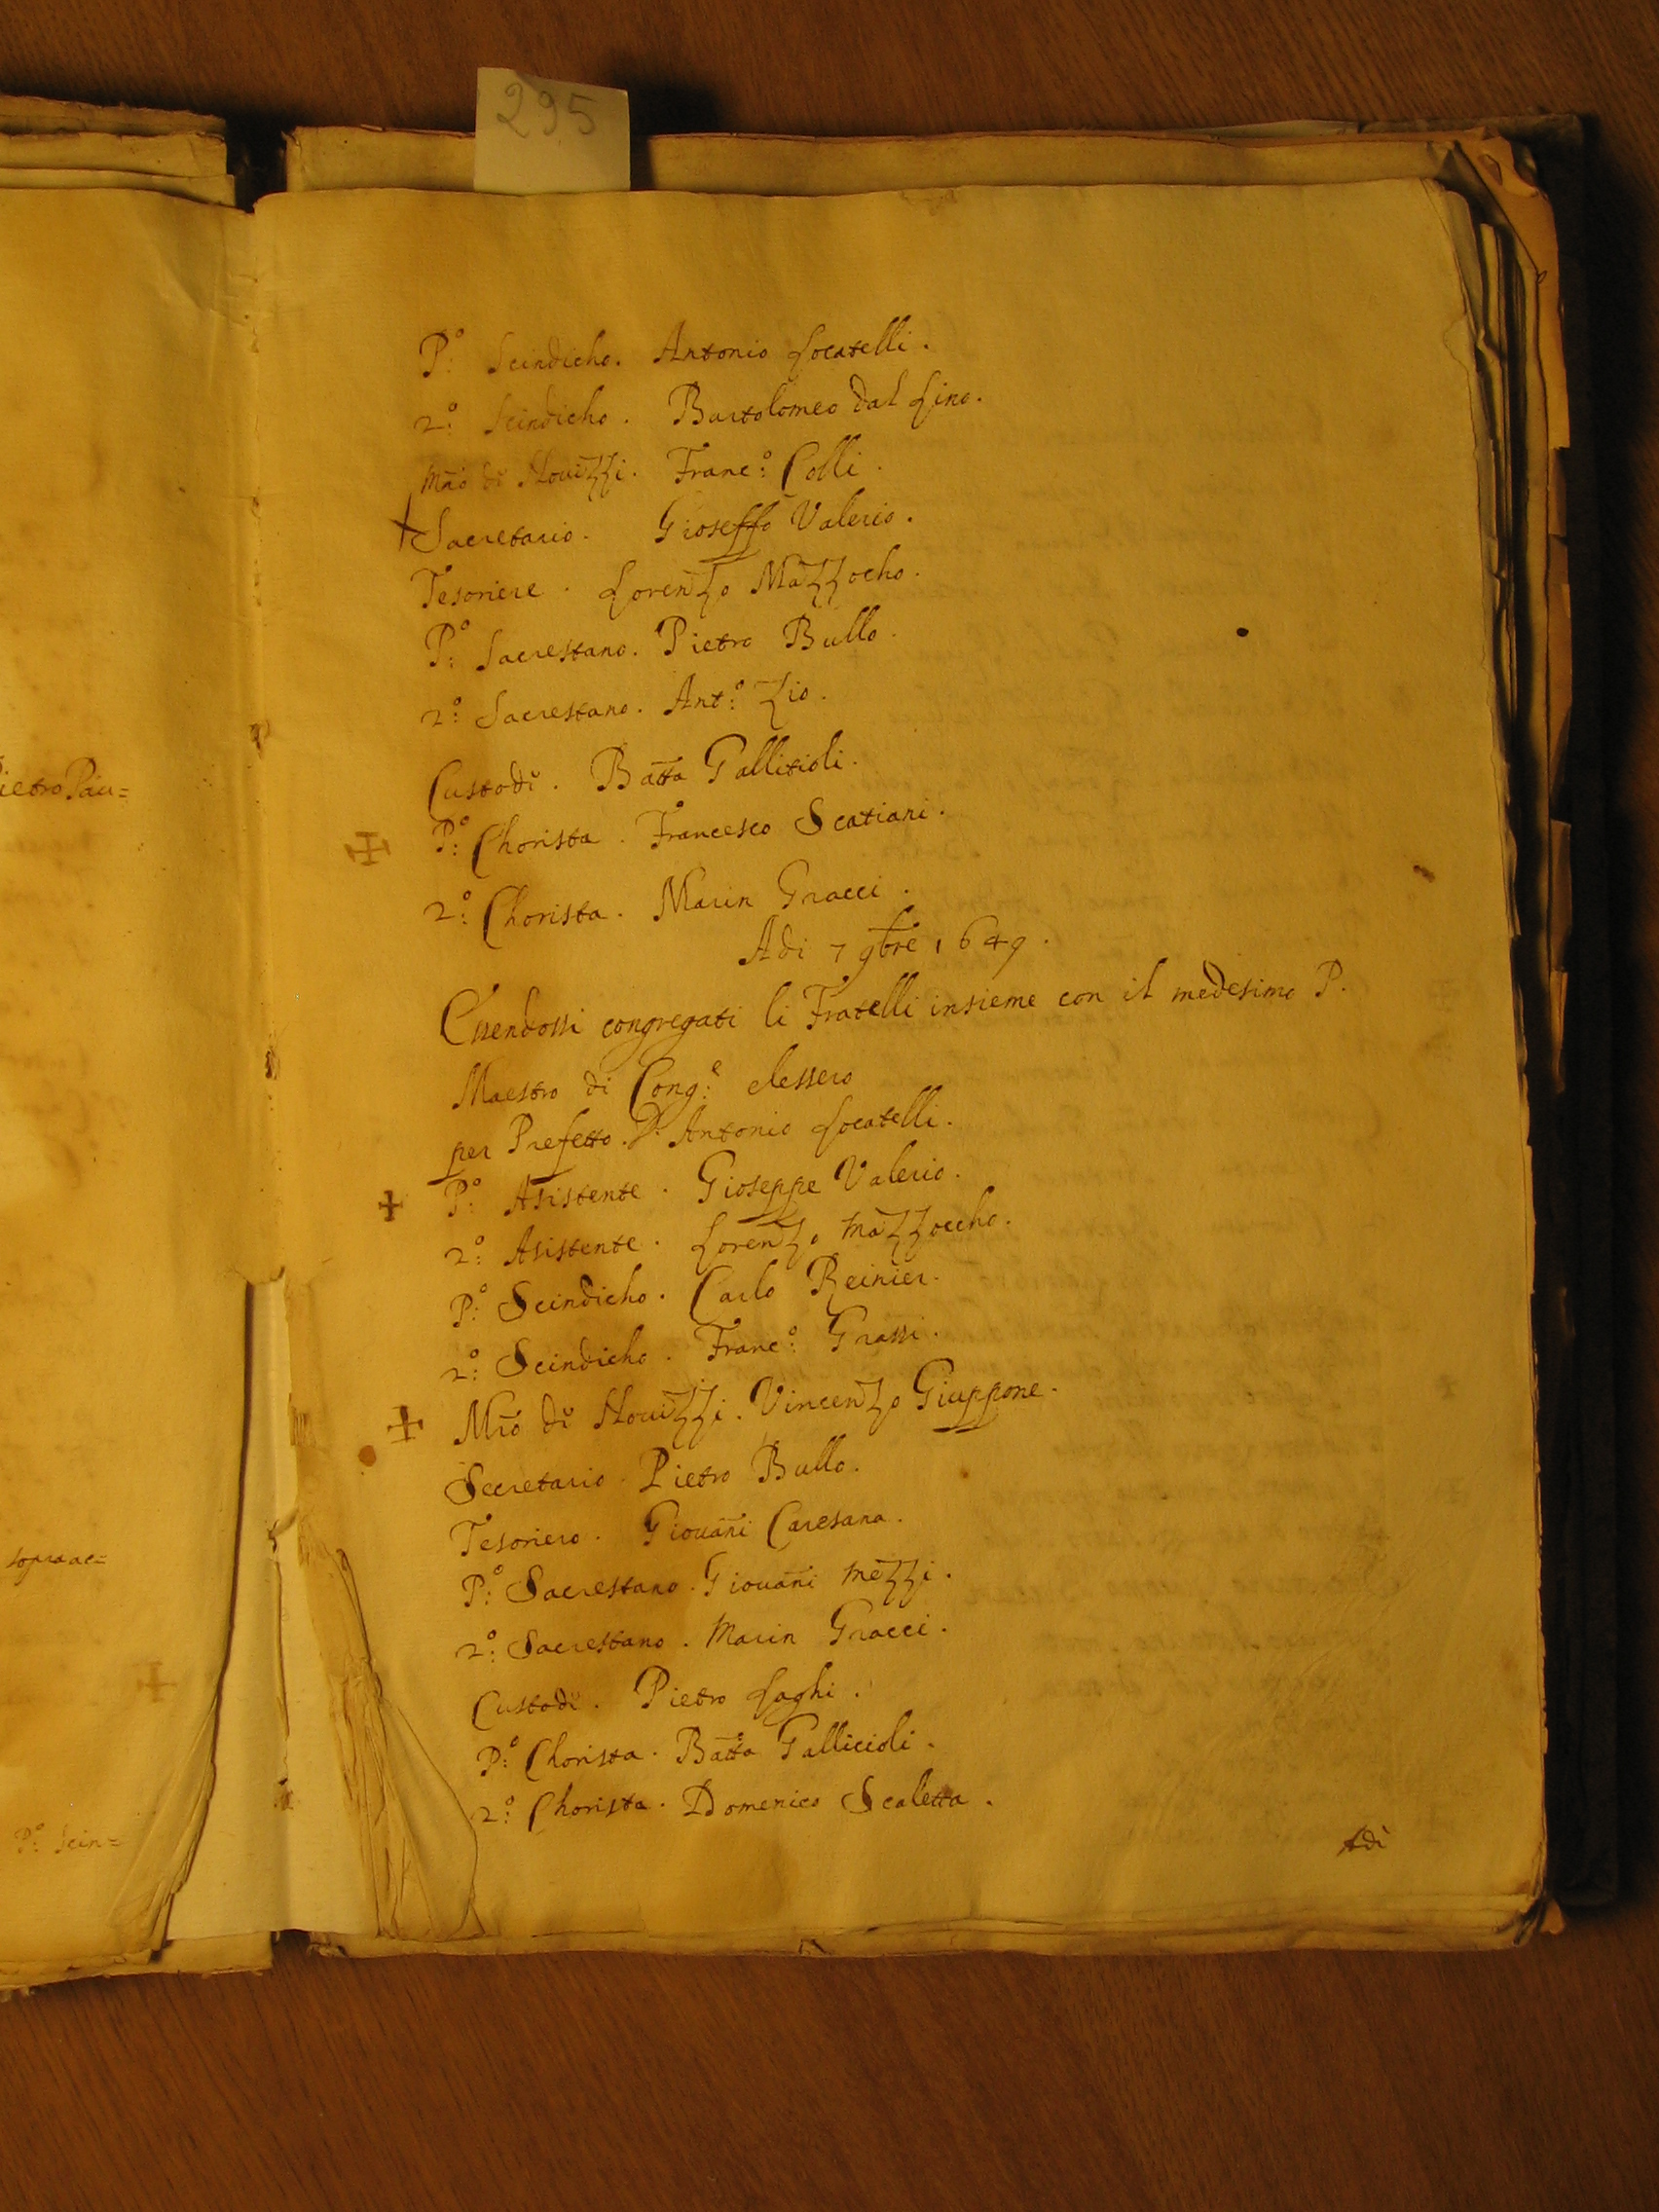 295
P:º Scindicho. Antonio Locatelli.
2:º Scindicho. Bartolomeo dal Lino.
Mrõ di Nouizzi. Franc:º Colli.
Sacretario. Gioseffo Valerio.
Tesoriere. Lorenzo Mazzocho.
P:º Sacrestano. Pietro Bullo.
2:º Sacrestano. Ant:º Zio.
Custodi. Batta Gallitioli.
P:º Chorista. Francesco Scatiani.
2:º Chorista. Marin Gracci.
Adi 7 9bre 1649.
Essendossi congregati li Fratelli insieme con il medesimo P.
Maestro di Cong:e elessero
per Prefetto. D. Antonio Locatelli.
P:º Asistente. Gioseppe Valerio.
2:º Asistente. Lorenzo Mazzoccho.
P:º Scindicho. Carlo Reinier.
2:º Scindicho. Franc:º Grassi.
Mrõ di Nouizzi. Vincenzo Giuppone.
Secretario. Pietro Bullo.
Tesoriero. Giouañi Caresana.
P:º Sacrestano. Giouañi Mezzi.
2:º Sacrestano. Marin Gracci.
Custodi. Pietro Laghi.
P:º Chorista. Batta Gallicioli.
2:º Chorista. Domenico Scaletta.
Adì
ietro Pau=
sopra ac=
P:º Scin=